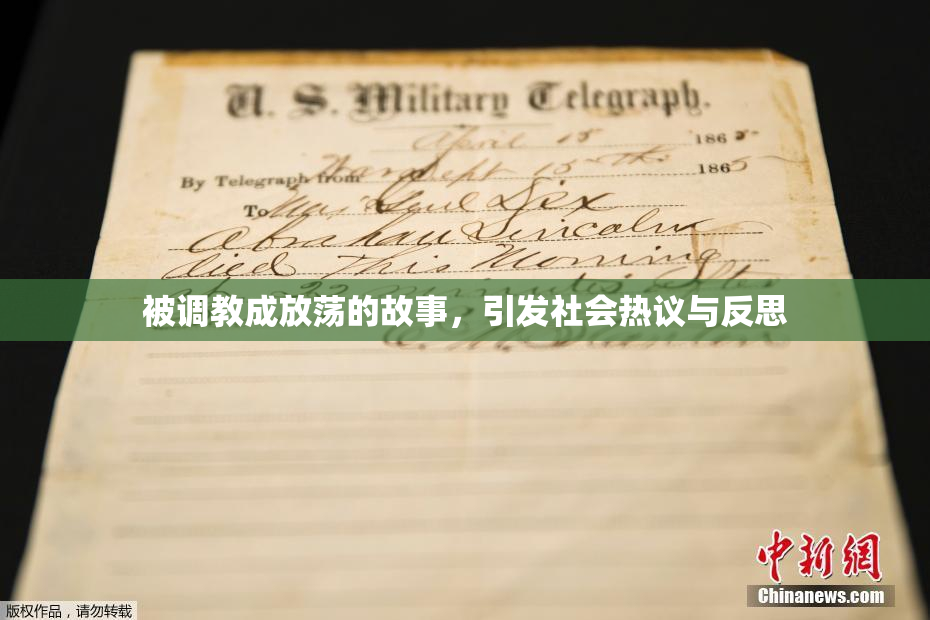 U. S. Military Telegraph.
April 15 1865
By Telegraph from War Dept 15th 1865
To Maj Genl Dix
Abraham Lincoln
died This Morning
22 minutes after
被调教成放荡的故事，引发社会热议与反思
E. M. Stanton
中新网
Chinanews.com
版权作品，请勿转载